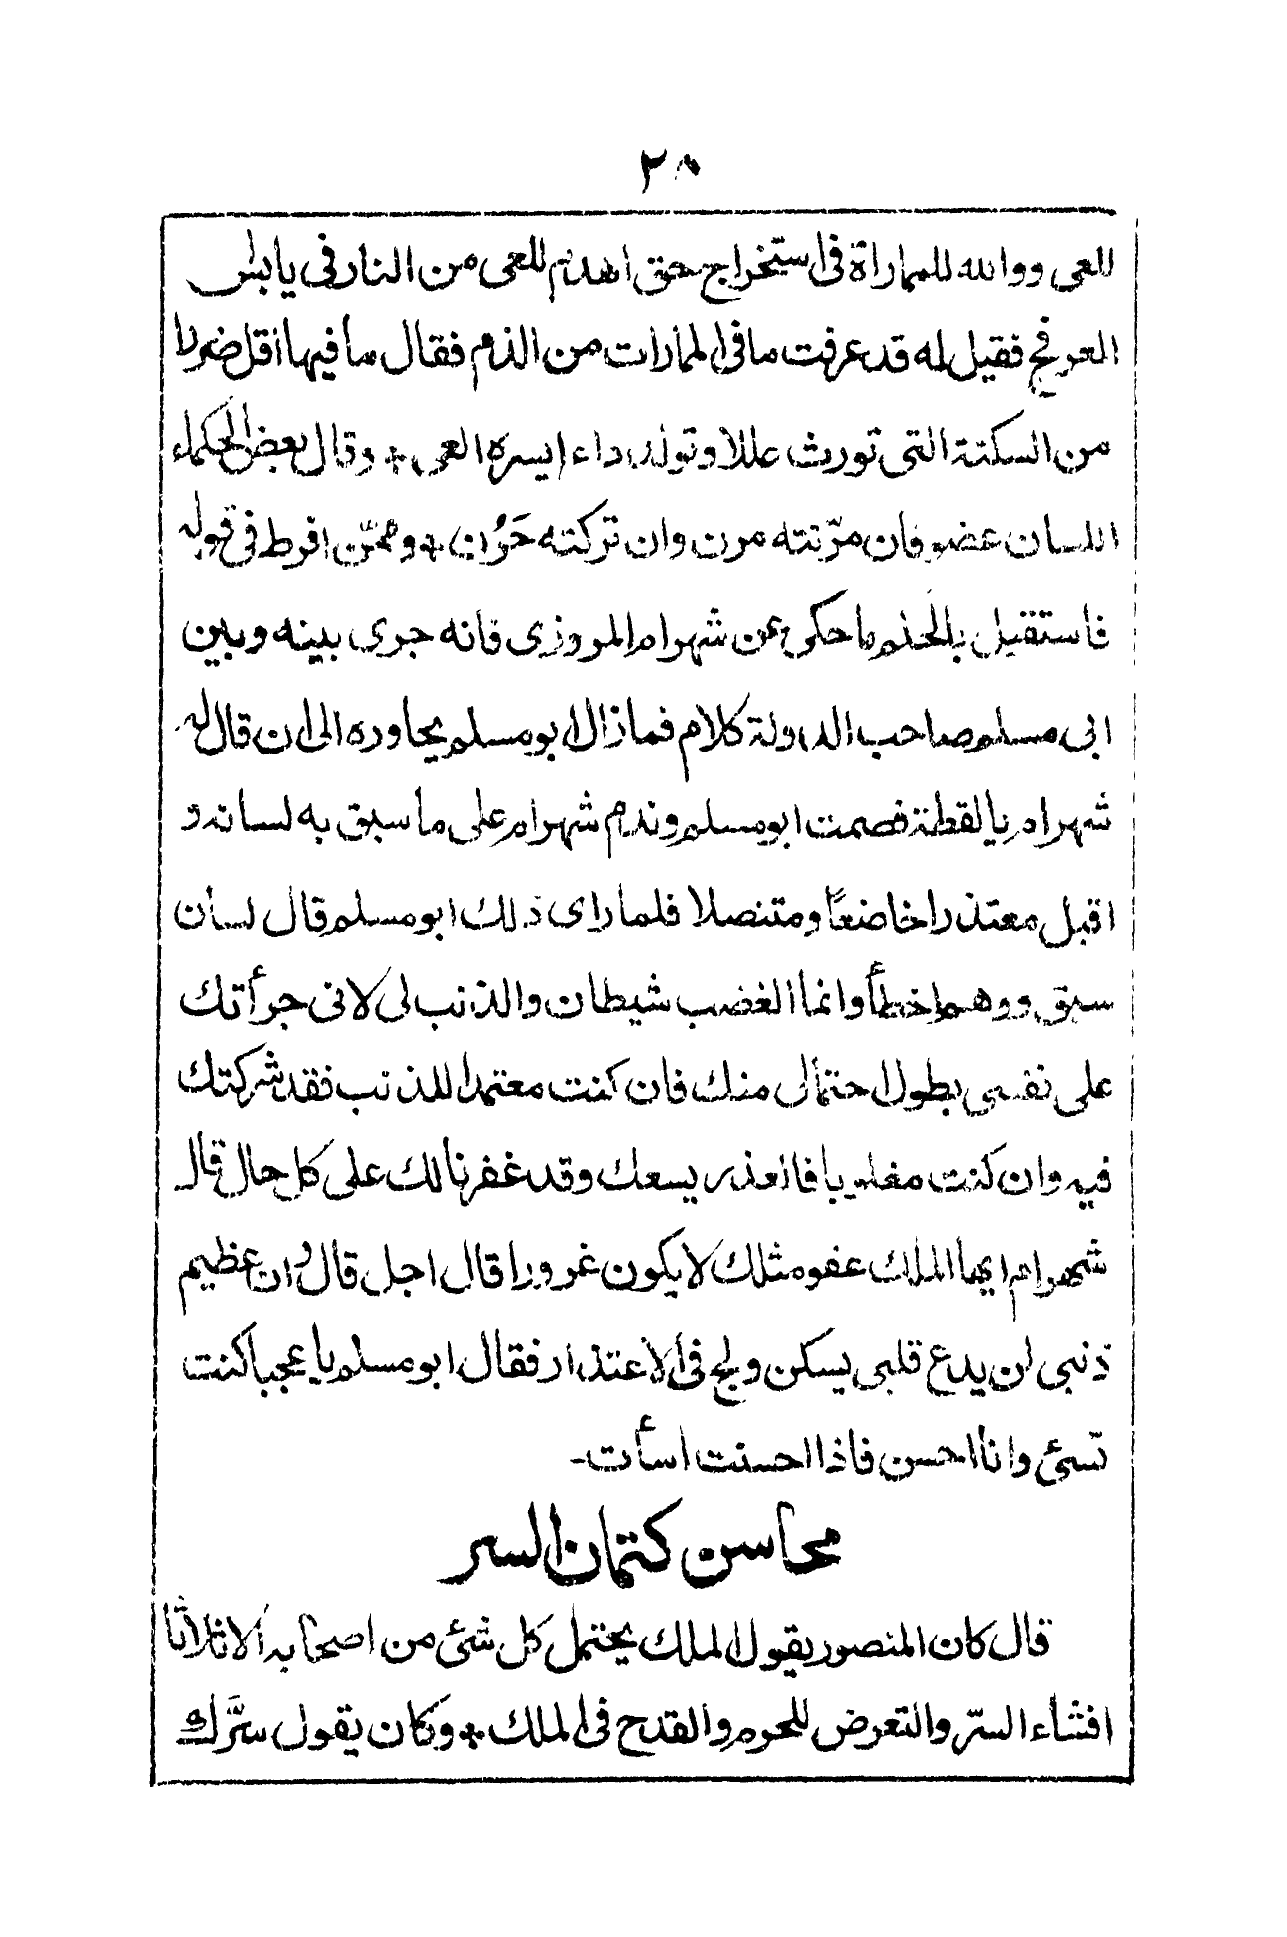 ٢٨
للعي ووالله للمماراة في استخراج حق اهدم للعى من النار في يابس
العرفج فقيل له قد عرفت ما في المماراة من الذم فقال ما فيها اقل ضررا
من السكتة التى تورث عللا وتولد داء ايسره العى + وقال بعض الحكماء
اللسان عضو فان مرّنته مرن وان تركته حَرُن + وممّن افرط في قوله
فاستقيل بالحلم ما حكى عن شهرام المروزى فانه جرى بينه وبين
ابى مسلم صاحب الدولة كلام فمازال ابو مسلم يحاوره الى ان قال له
شهرام يالقطة فصمت ابو مسلم وندم شهرام على ما سبق به لسانه و
اقبل معتذرا خاضعًا ومتنصلا فلما راى ذلك ابو مسلم قال لسان
سبق ووهم اخطأ وانما الغضب شيطان والذنب لى لانى جرأتك
على نفسى بطول احتمالى منك فان كنت معتمدا للذنب فقد شركتك
فيه وان كنت مغلوبا فالعذر يسعك وقد غفرنا لك على كل حال قال
شهرام ايها الملك عفو مثلك لا يكون غرورا قال اجل قال وان عظيم
ذنبى لن يدع قلبى يسكن ولج في الاعتذار فقال ابو مسلم يا عجبا كنت
تسئ وانا احسن فاذا احسنت اسأت-
محاسن كتمان السر
قال كان المنصور يقول الملك يحتمل كل شئ من اصحابه الا ثلاثا
افشاء السرّ والتعرض للحرم والقدح في الملك + وكان يقول سرّك